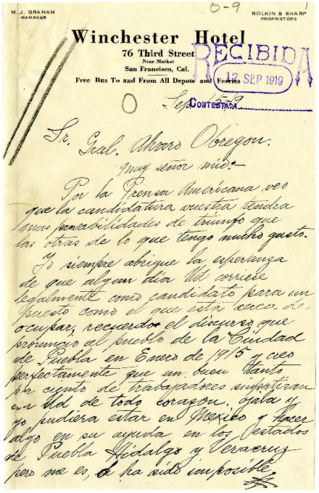 O-9
M. J. GRAHAM
MANAGER
ROLKIN & SHARP
PROPRIETORS
Winchester Hotel
76 Third Street
Near Market
San Francisco, Cal.
Free Bus To and From All Depots and Ferries
RECIBIDA
12 SEP 1919
CONTESTADA
Sep
Sr. Gral. Alvaro Obregon.
muy señor mio:
Por la Prensa Americana veo
que la candidatura vuestra tendra
mas provabilidades de triunfo que
las otras de lo que tengo mucho gusto.
Yo siempre abrigue la esperanza
de que algun dia Ud corriese
legalmente como candidato para un
puesto como el que esta cerca de
ocupar, recuerdo el discurso que
pronuncio al pueblo de la Ciudad
de Puebla en Enero de 1915 y creo
perfectamente que un buen tanto
por ciento de trabajadores
a Ud de todo corazon, ojala y
yo pudiera estar en Mexico y hacer
algo en su ayuda en los estados
de Puebla Hidalgo y Veracruz
pero me es, o ha sido imposible